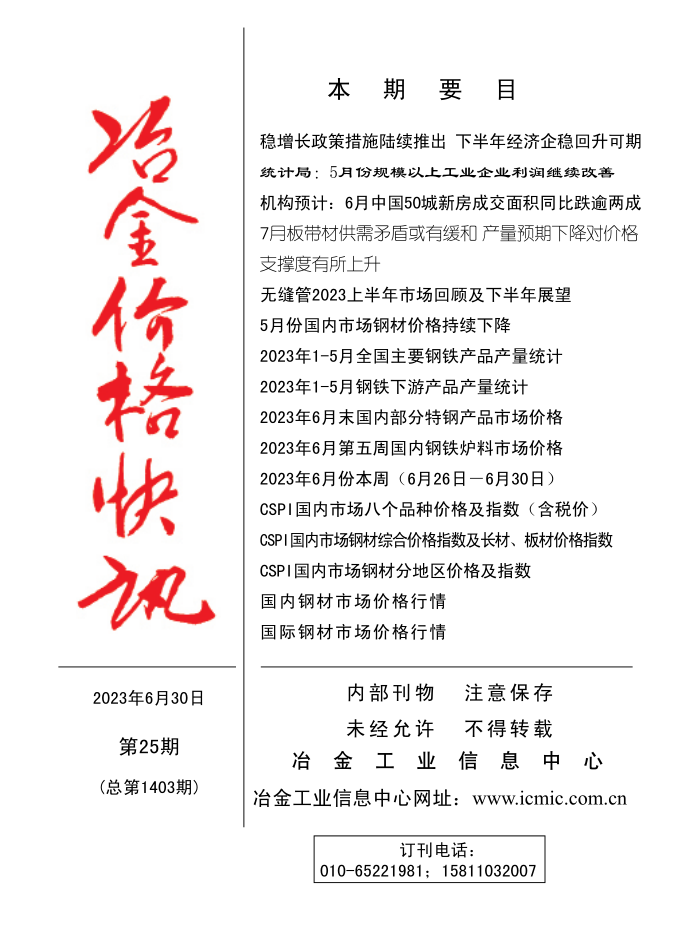 冶金价格快讯
2023年6月30日
第25期
(总第1403期)
本期要目
稳增长政策措施陆续推出 下半年经济企稳回升可期
统计局：5月份规模以上工业企业利润继续改善
机构预计：6月中国50城新房成交面积同比跌逾两成
7月板带材供需矛盾或有缓和 产量预期下降对价格
支撑度有所上升
无缝管2023上半年市场回顾及下半年展望
5月份国内市场钢材价格持续下降
2023年1-5月全国主要钢铁产品产量统计
2023年1-5月钢铁下游产品产量统计
2023年6月末国内部分特钢产品市场价格
2023年6月第五周国内钢铁炉料市场价格
2023年6月份本周（6月26日－6月30日）
CSPI国内市场八个品种价格及指数（含税价）
CSPI国内市场钢材综合价格指数及长材、板材价格指数
CSPI国内市场钢材分地区价格及指数
国内钢材市场价格行情
国际钢材市场价格行情
内部刊物 注意保存
未经允许 不得转载
冶金工业信息中心
冶金工业信息中心网址：www.icmic.com.cn
订刊电话：
010-65221981；15811032007